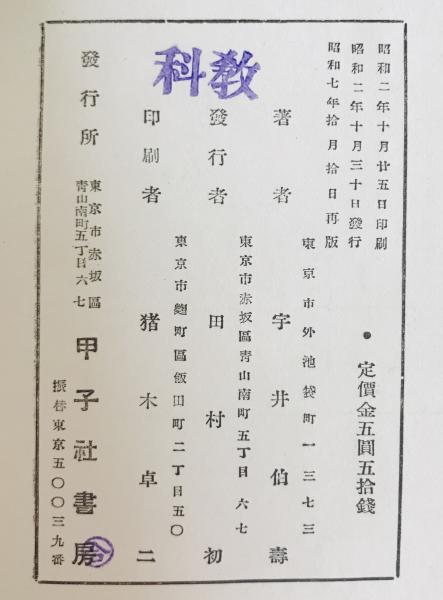 教科
昭和二年十月廿五日印刷
昭和二年十月三十日發行
昭和七年拾月拾日再版
● 定價金五圓五拾錢
東京市外池袋町一三七三
著者 宇井伯壽
東京市赤坂區青山南町五丁目六七
發行者 田村初
東京市麴町區飯田町二丁目五〇
印刷者 猪木卓二
東京市赤坂區
青山南町五丁目六七
發行所 甲子社書房
振替東京五〇〇三九番